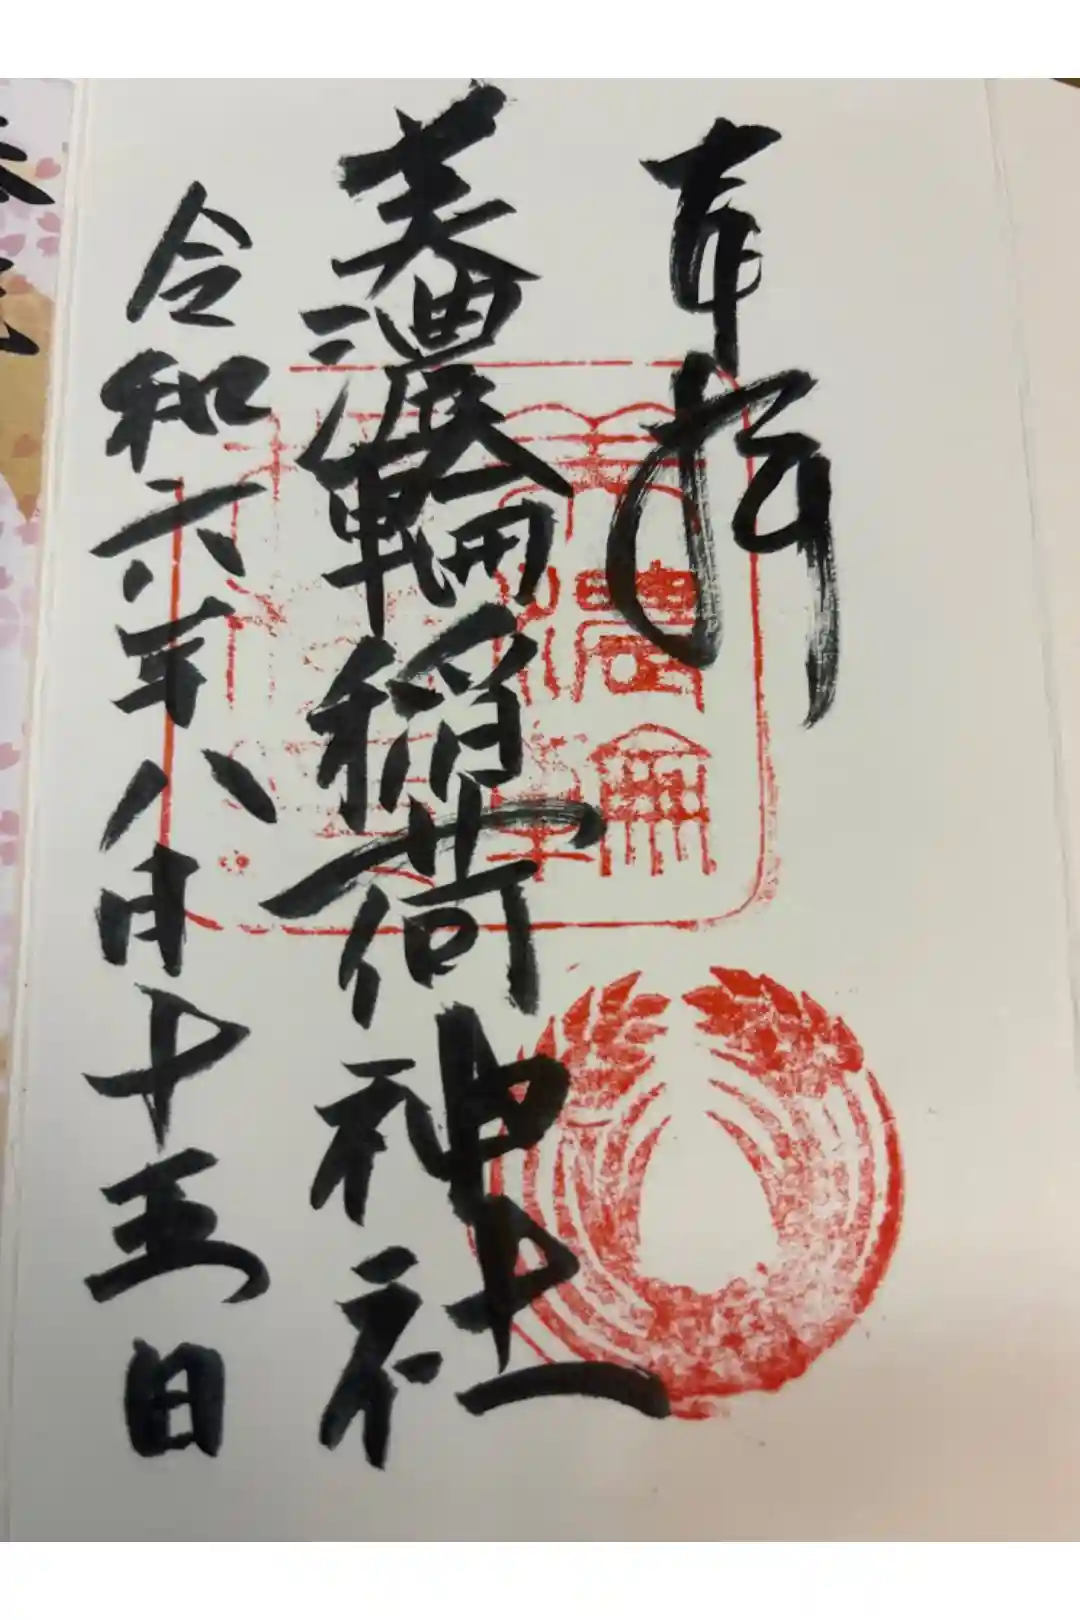 奉拝
美濃輪稲荷神社
令和六年八月十五日